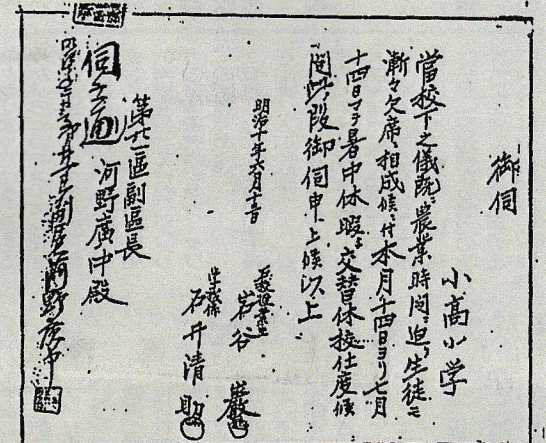 御伺
小高小学
當校下之儀既ニ農業時間ニ迫リ生徒モ
漸々欠席ニ相成候ニ付本月十四日ヨリ七月
十四日マデ暑中休暇ト交替休校仕度候
間此段御伺申上候以上
明治十年六月十二日
岩谷 巌
石井清
第 區副區長
河野廣中殿
伺之通
河野廣中